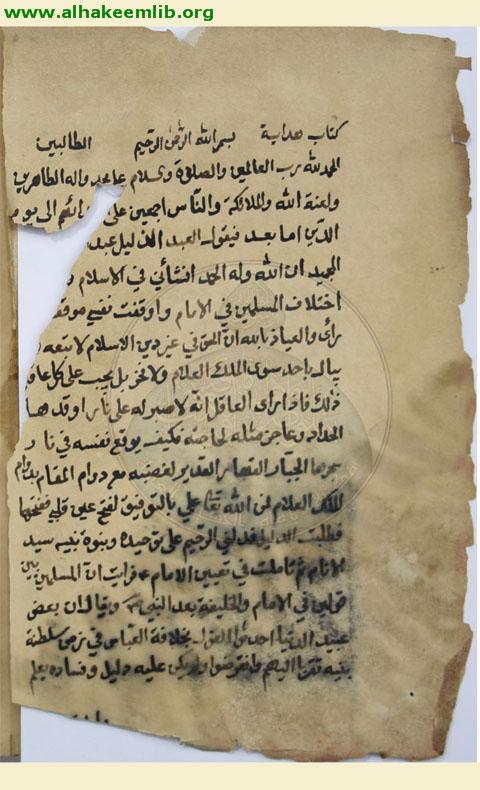 www.alhakeemlib.org
كتاب هداية بسم الله الرحمن الرحيم الطالبين
الحمد لله رب العالمين والصلوة والسلام على محمد واله الطاهرين
ولعنة الله والملائكة والناس اجمعين على الى يوم
الدين اما بعد فيقول العبد الذليل عبد
المجيد ان الله وله الحمد انشأني في الاسلام
اختلاف المسلمين في الامام واوقفت نفسي موقف
راى والعياذ بالله ان الحق في غير دين الاسلام لاتبعه
يبال باحد سوى الملك العلام ولا فخر بل يجب على كل عاقل
ذلك فاذا راى العاقل انه لا صبر له على نار اوقدها
الحداد وعاجز مثله لحاجته فكيف يوقع نفسه في نار
سجرها الجبار القهار القدير لغضبه مع دوام المقام بدوام
الملك العلام فمن الله تعالى علي بالتوفيق لفتح عين قلبي ففتحتها
فطلبت الدليل فدلني الرحيم على توحيده ونبوة نبيه سيد
الانام ثم تاملت في تعيين الامام فرايت ان المسلمين بين
قولين في الامام والخليفة بعد النبي ويقال ان بعض
عبيد الدنيا احدثوا القول بخلافة العباس في زمن سلطنة
بنيه تقربا اليهم وانقرضوا ولم يكن عليه دليل وفساده يعلم